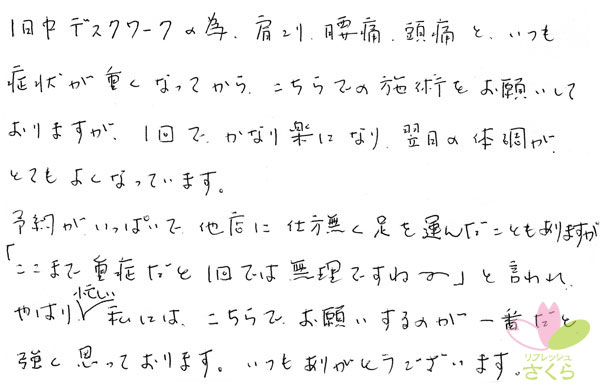 1日中デスクワークの為、肩こり、腰痛、頭痛と、いつも
症状が重くなってから、こちらでの施術をお願いして
おりますが、1回で、かなり楽になり、翌日の体調が、
とてもよくなっています。
予約がいっぱいで、他店に仕方無く足を運んだこともありますが
「ここまで重症だと1回では無理ですね〜」と言われ、
やはり、忙しい私には、こちらで、お願いするのが一番だと
強く思っております。いつもありがとうございます。
リフレッシュ
さくら